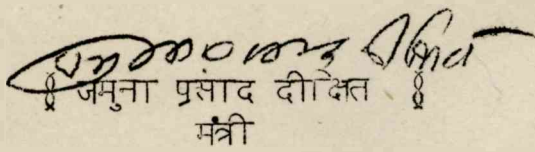 जमुना प्रसाद दीक्षित
मंत्री